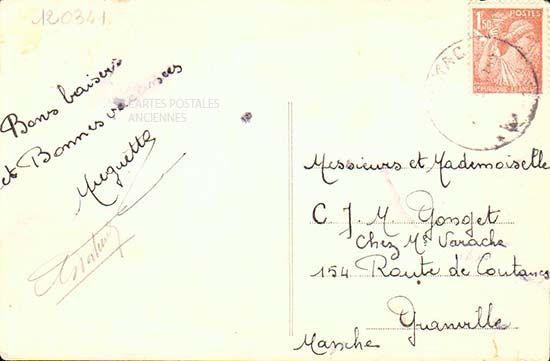 120341
Bons baisers
et Bonnes vacances
Muguette
CARTES POSTALES
ANCIENNES
POSTES
1F50
Messieurs et Mademoiselle
C J. M. Gonget
Chez Mr Varache
154 Route de Coutances
Granville
Manche